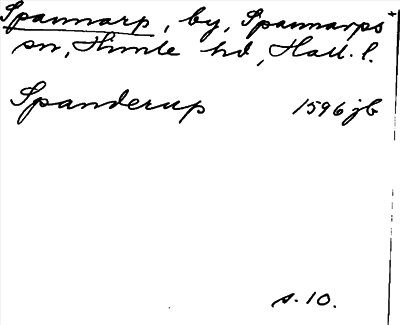 Spannarp, by, Spannarps
sn, Himle hd, Hall. l.
Spanderup 1596 jb
s. 10.